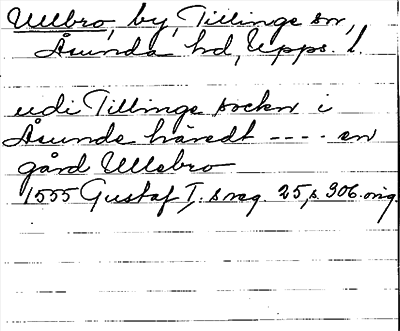 Ullbro, by, Tillinge sn,
Åsunda hd, Upps. l.
udi Tillinge sockn i
Åsunde häredt ---- en
gård Ullebro
1555 Gustaf I:s reg. 25, s. 306. orig.